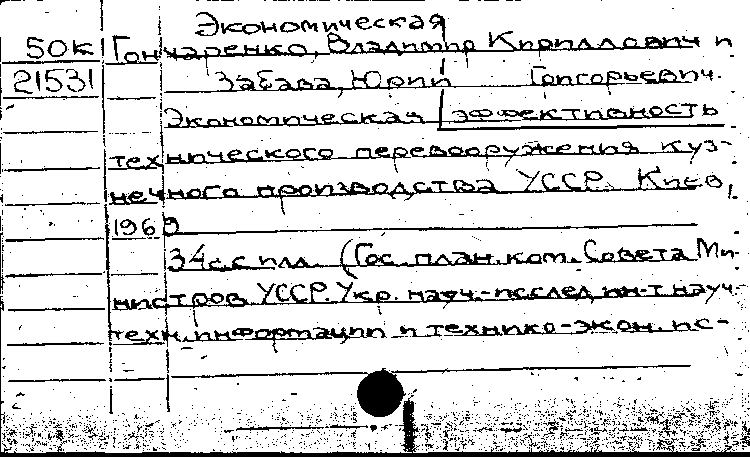 Экономическая
50к Гончаренко, Владимир Кириллович и
21531 Забава, Юрий Григорьевич.
Экономическая эффективность
технического перевооружения куз-
нечного производства УССР. Киев,
1969
34 с. с илл. (Гос. план. ком. Совета Ми-
нистров УССР. Укр. науч.-исслед. ин-т науч.-
техн. информации и технико-экон. ис-